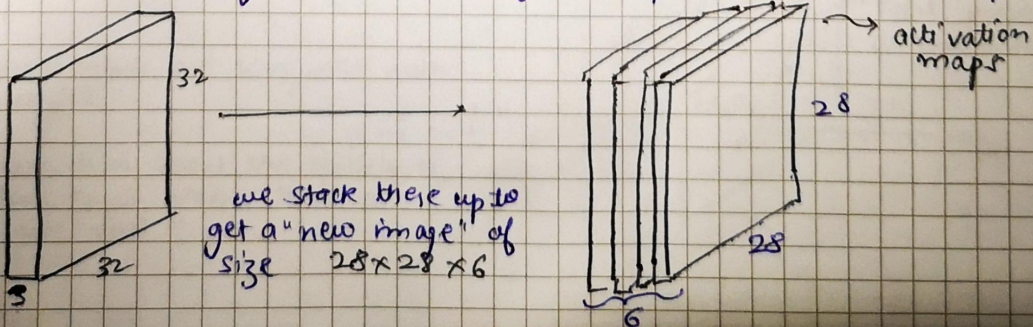 32
32
3
we stack these up to
get a "new image" of
size 28×28×6
activation
maps
28
28
6